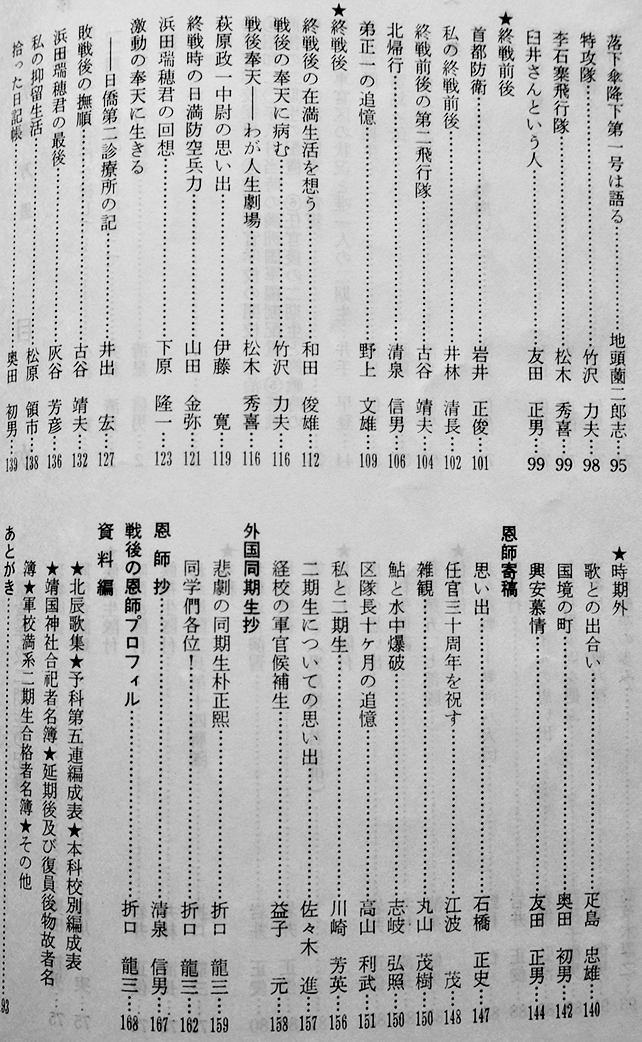 落下傘降下第一号は語る……地頭薗二郎志…95
特攻隊……竹沢 力夫…98
李石寨飛行隊……松木 秀喜…99
臼井さんという人……友田 正男…99
★終戦前後
首都防衛……岩井 正俊…101
私の終戦前後……井林 清長…102
終戦前後の第二飛行隊……古谷 靖夫…104
北帰行……清泉 信男…106
弟正一の追憶……野上 文雄…109
★終戦後
終戦後の在満生活を想う……和田 俊雄…112
戦後の奉天に病む……竹沢 力夫…116
戦後奉天――わが人生劇場……松木 秀喜…116
萩原政一中尉の思い出……伊藤 寛…119
終戦時の日満防空兵力……山田 金弥…121
浜田瑞穂君の回想……下原 隆一…123
激動の奉天に生きる
――日僑第二診療所の記……井出 宏…127
敗戦後の撫順……古谷 靖夫…132
浜田瑞穂君の最後……灰谷 芳彦…136
私の抑留生活……松原 領市…138
拾った日記帳……奥田 初男…139
★時期外
歌との出合い……疋島 忠雄…140
国境の町……奥田 初男…142
興安慕情……友田 正男…144
恩師寄稿
思い出……石橋 正史…147
任官三十周年を祝す……江波 茂…148
雑観……丸山 茂樹…150
鮎と水中爆破……志岐 弘照…150
区隊長十ヶ月の追憶……高山 利武…151
私と二期生……川崎 芳英…156
二期生についての思い出……佐々木 進…157
経校の軍官候補生……益子 元…158
外国同期生抄
悲劇の同期生朴正煕……折口 龍三…159
同学們各位！……折口 龍三…162
恩師抄……清泉 信男…167
戦後の恩師プロフィル……折口 龍三…168
資料編
★北辰歌集★予科第五連編成表★本科校別編成表
★靖国神社合祀者名簿★延期後及び復員後物故者名
簿★軍校満系二期生合格者名簿★その他
あとがき……93